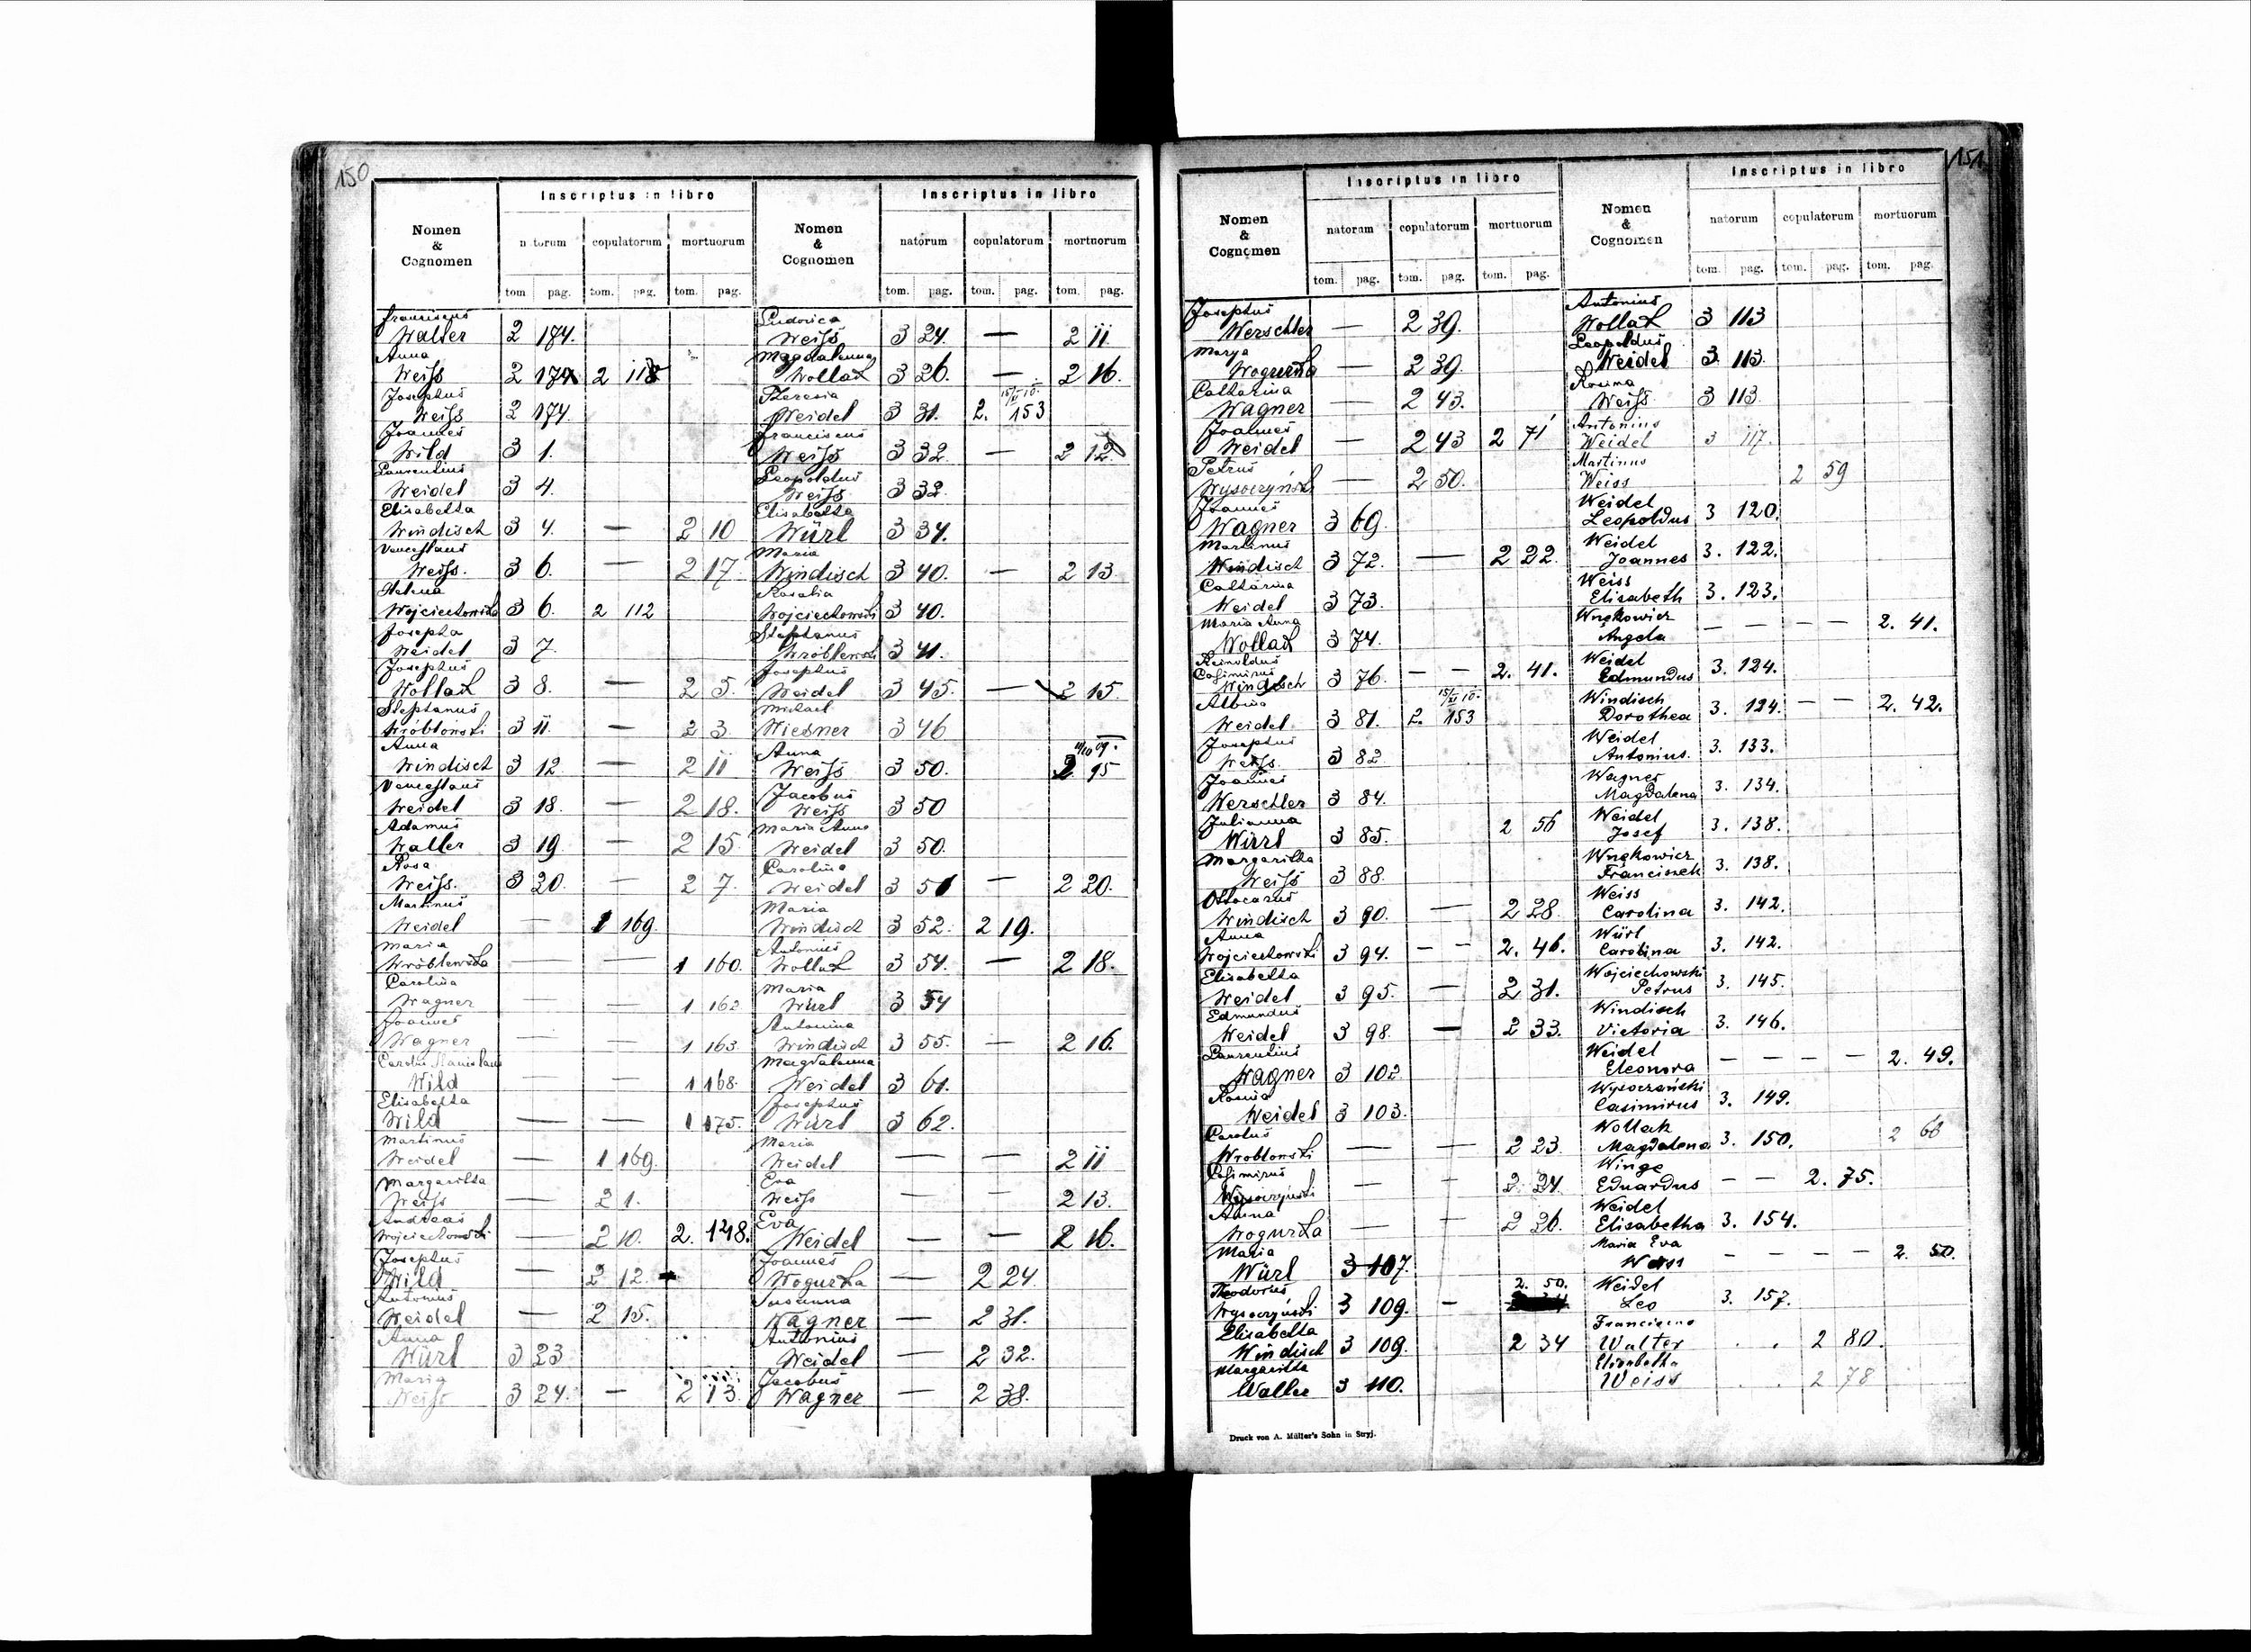 150
Inscriptus in libro
Inscriptus in libro
Nomen & Cognomen
natorum copulatorum mortuorum
Nomen & Cognomen
natorum copulatorum mortuorum
tom. pag. tom. pag. tom. pag.
tom. pag. tom. pag. tom. pag.
Franciscus
Walter 2 174.
Anna
Weiss 2 174 2 118
Josephus
Weiss 2 174.
Joannes
Wild 3 1.
Laurentius
Weidel 3 4.
Elisabetha
Windisch 3 4. — 2 10
Venceslaus
Weiss. 3 6. — 2 17.
Helena
Wojciechowska 3 6. 2 112
Josepha
Weidel 3 7.
Josephus
Wollak 3 8. — 2 5.
Stephanus
Wróblowski 3 11. — 2 3.
Anna
Windisch 3 12. — 2 11
Venceslaus
Weidel 3 18. — 2 18.
Adamus
Walter 3 19. — 2 15.
Rosa
Weiss. 3 20. — 2 7.
Martinus
Weidel — 1 169.
Maria
Wróblewska — — 1 160.
Carolina
Wagner — — 1 162
Joannes
Wagner — — 1 163.
Carolus Stanislaus
Wild — — 1 168.
Elisabetha
Wild — — 1 175.
Martinus
Weidel — 1 169.
Margaritha
Weiss — 2 1.
Andreas
Wojciechowski — 2 10. 2. 148.
Josephus
Wild — 2 12.
Antonius
Weidel — 2 15.
Anna
Würl 3 23
Maria
Weiss 3 24. — 2 13.
Ludovica
Weiss 3 24. — 2 11.
Magdalenna
Wollak 3 26. — 2 16.
Theresia
Weidel 3 31. 2. 153
Franciscus
Weiss 3 32. — 2 12.
Leopoldus
Weiss 3 32.
Elisabetha
Würl 3 34.
Maria
Windisch 3 40. — 2 13.
Rosalia
Wojciechowski 3 40.
Stephanus
Wróblewski 3 41.
Josephus
Weidel 3 45. — 2 15
Michael
Wiesner 3 46
Anna
Weiss 3 50. 2 95
Jacobus
Weiss 3 50
Maria Anna
Weidel 3 50.
Carolina
Weidel 3 51 — 2 20.
Maria
Windisch 3 52. 2 19.
Antonius
Wollak 3 54. — 2 18.
Maria
Würl 3 54
Antonina
Windisch 3 55. — 2 16.
Magdalenna
Weidel 3 61.
Josephus
Würl 3 62.
Maria
Weidel — — 2 11
Eva
Weiss — — 2 13.
Eva
Weidel — — 2 16.
Joannes
Wogurka — 2 24.
Susanna
Wagner — 2 31.
Antonius
Weidel — 2 32.
Jacobus
Wagner — 2 38.
151
Inscriptus in libro
Inscriptus in libro
Nomen & Cognomen
natorum copulatorum mortuorum
Nomen & Cognomen
natorum copulatorum mortuorum
tom. pag. tom. pag. tom. pag.
tom. pag. tom. pag. tom. pag.
Josephus
Werschler — 2 39.
Marya
Wogurka — 2 39.
Catharina
Wagner — 2 43.
Joannes
Weidel — 2 43 2 71
Petrus
Wysoczyński — 2 50.
Joannes
Wagner 3 69.
Martinus
Windisch 3 72. — 2 22.
Catharina
Weidel 3 73.
Maria Anna
Wollak 3 74.
Reinoldus
Casimirus
Windisch 3 76. — — 2. 41.
Albina
Weidel 3 81. 2. 153
Josephus
Weiss. 3 82
Joannes
Werschler 3 84.
Julianna
Würl 3 85. 2 56
Margaritha
Weiss 3 88.
Ottocarus
Windisch 3 90. — 2 28.
Anna
Wojciechowski 3 94. — — 2. 46.
Elisabetha
Weidel 3 95. — 2 31.
Edmundus
Weidel 3 98. — 2 33.
Laurentius
Wagner 3 102
Rosina
Weidel 3 103.
Carolus
Wroblowski — — 2 23.
Casimirus
Wysoczyński — — 2 24.
Anna
Wogurka — — 2 26.
Maria
Würl 3 107.
Theodorus
Wysoczyński 3 109. — 2. 50.
Elisabetha
Windisch 3 109. 2 34
Margaritha
Walter 3 110.
Antonius
Wollak 3 113
Leopoldus
Weidel 3. 113.
Rosina
Weiss 3 113
Antonius
Weidel 3 117.
Martinus
Weiss 2 59
Weidel
Leopoldus 3 120.
Weidel
Joannes 3. 122.
Weiss
Elisabeth 3. 123.
Wnękowicz
Angela — — — — 2. 41.
Weidel
Edmundus 3. 124.
Windisch
Dorothea 3. 124. — — 2. 42.
Weidel
Antonius. 3. 133.
Wagner
Magdalena 3. 134.
Weidel
Josef 3. 138.
Wnękowicz
Franciszek 3. 138.
Weiss
Carolina 3. 142.
Würl
Carolina 3. 142.
Wojciechowski
Petrus 3. 145.
Windisch
Victoria 3. 146.
Weidel
Eleonora — — — — 2. 49.
Wysoczański
Casimirus 3. 149.
Wollak
Magdalena 3. 150. 2 66
Winge
Eduardus — — 2. 75.
Weidel
Elisabetha 3. 154.
Maria Eva
Weiss — — — — 2. 50.
Weidel
Leo 3. 157.
Franciscus
Walter . . 2 80.
Elisabetha
Weiss . . 2 78
Druck von A. Müller's Sohn in Stryj.